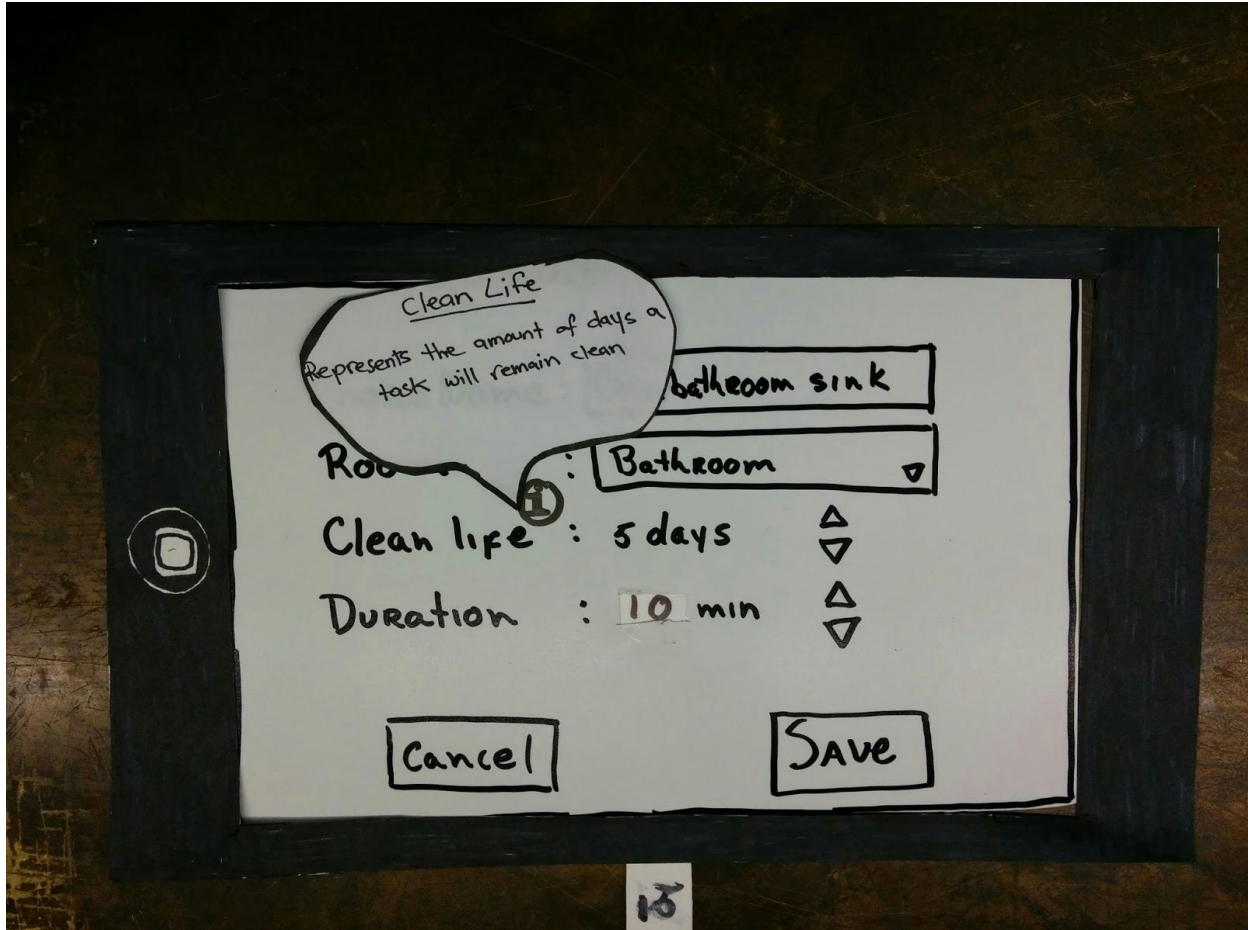 Clean Life
Represents the amount of days a
task will remain clean
bathroom sink
Roo : Bathroom
i
Clean life : 5 days
Duration : 10 min
Cancel
SAVE
15